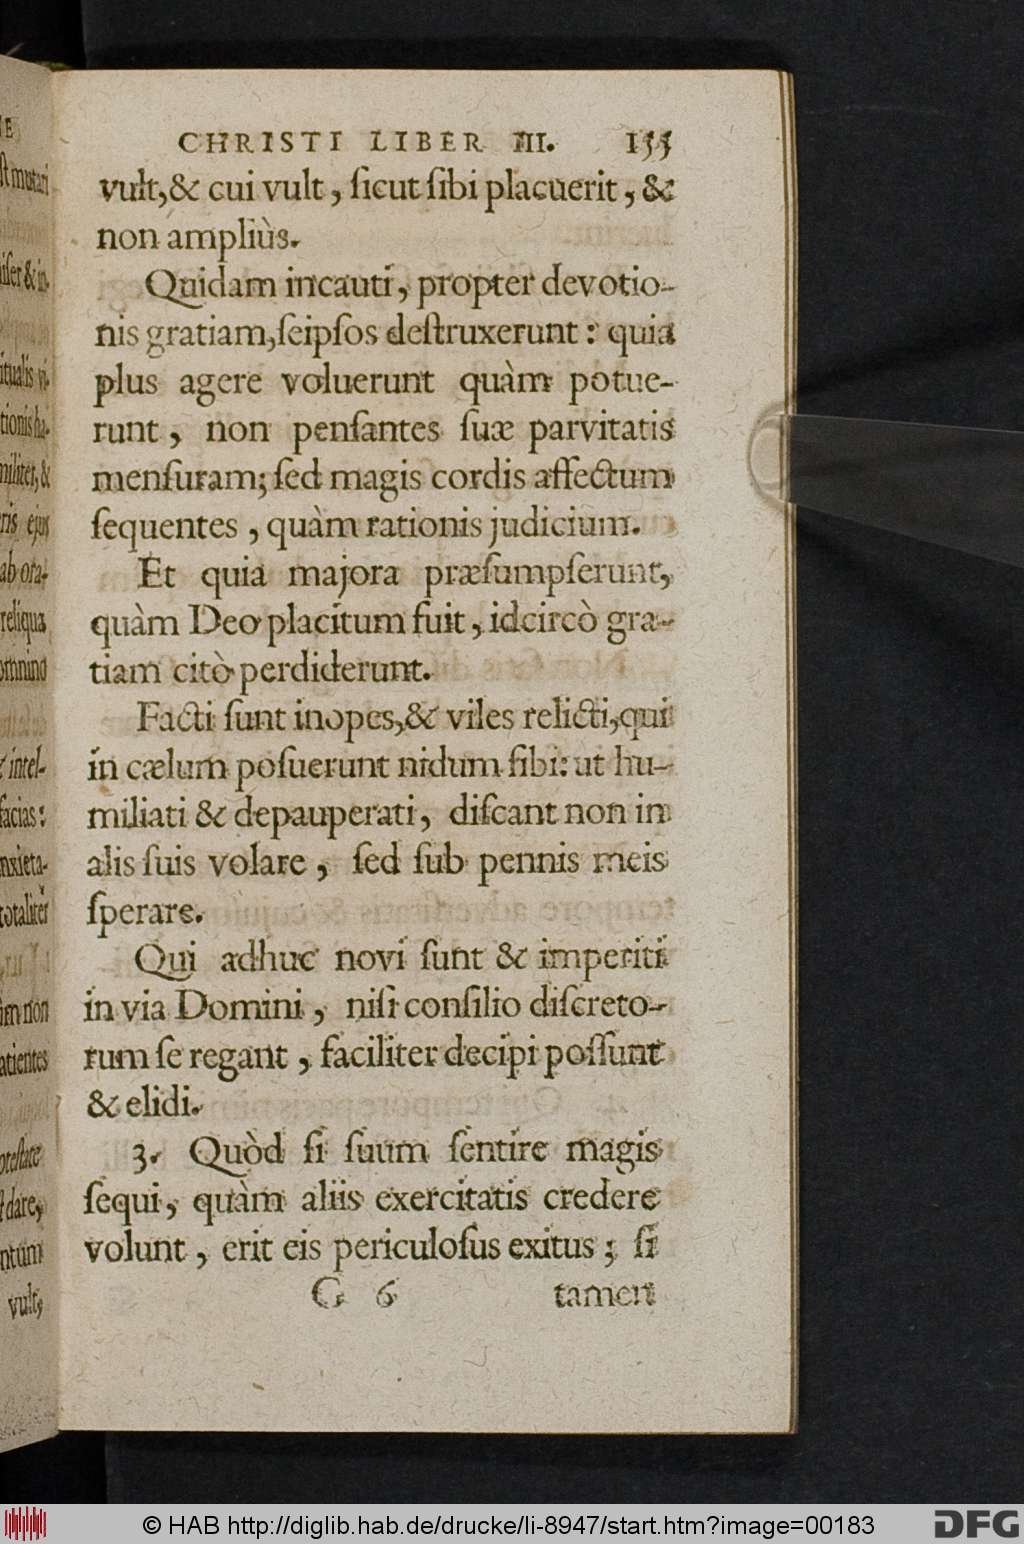 CHRISTI LIBER III. 155
vult,& cui vult, ſicut ſibi placuerit, &
non ampliùs.
Quidam incauti, propter devotio-
nis gratiam,ſeipſos deſtruxerunt: quia
plus agere voluerunt quàm potue-
runt, non penſantes ſuæ parvitatis
menſuram; ſed magis cordis affectum
ſequentes, quàm rationis judicium.
Et quia majora præſumpſerunt,
quàm Deo placitum fuit, idcircò gra-
tiam citò perdiderunt.
Facti ſunt inopes,& viles relicti,qui
in cælum poſuerunt nidum ſibi: ut hu-
miliati & depauperati, diſcant non in
alis ſuis volare, ſed ſub pennis meis
ſperare.
Qui adhuc novi ſunt & imperiti
in via Domini, niſi conſilio diſcreto-
rum ſe regant, faciliter decipi poſſunt
& elidi.
3. Quòd ſi ſuum ſentire magis
ſequi, quàm aliis exercitatis credere
volunt, erit eis periculoſus exitus; ſi
G 6 tamen
© HAB http://diglib.hab.de/drucke/li-8947/start.htm?image=00183
DFG